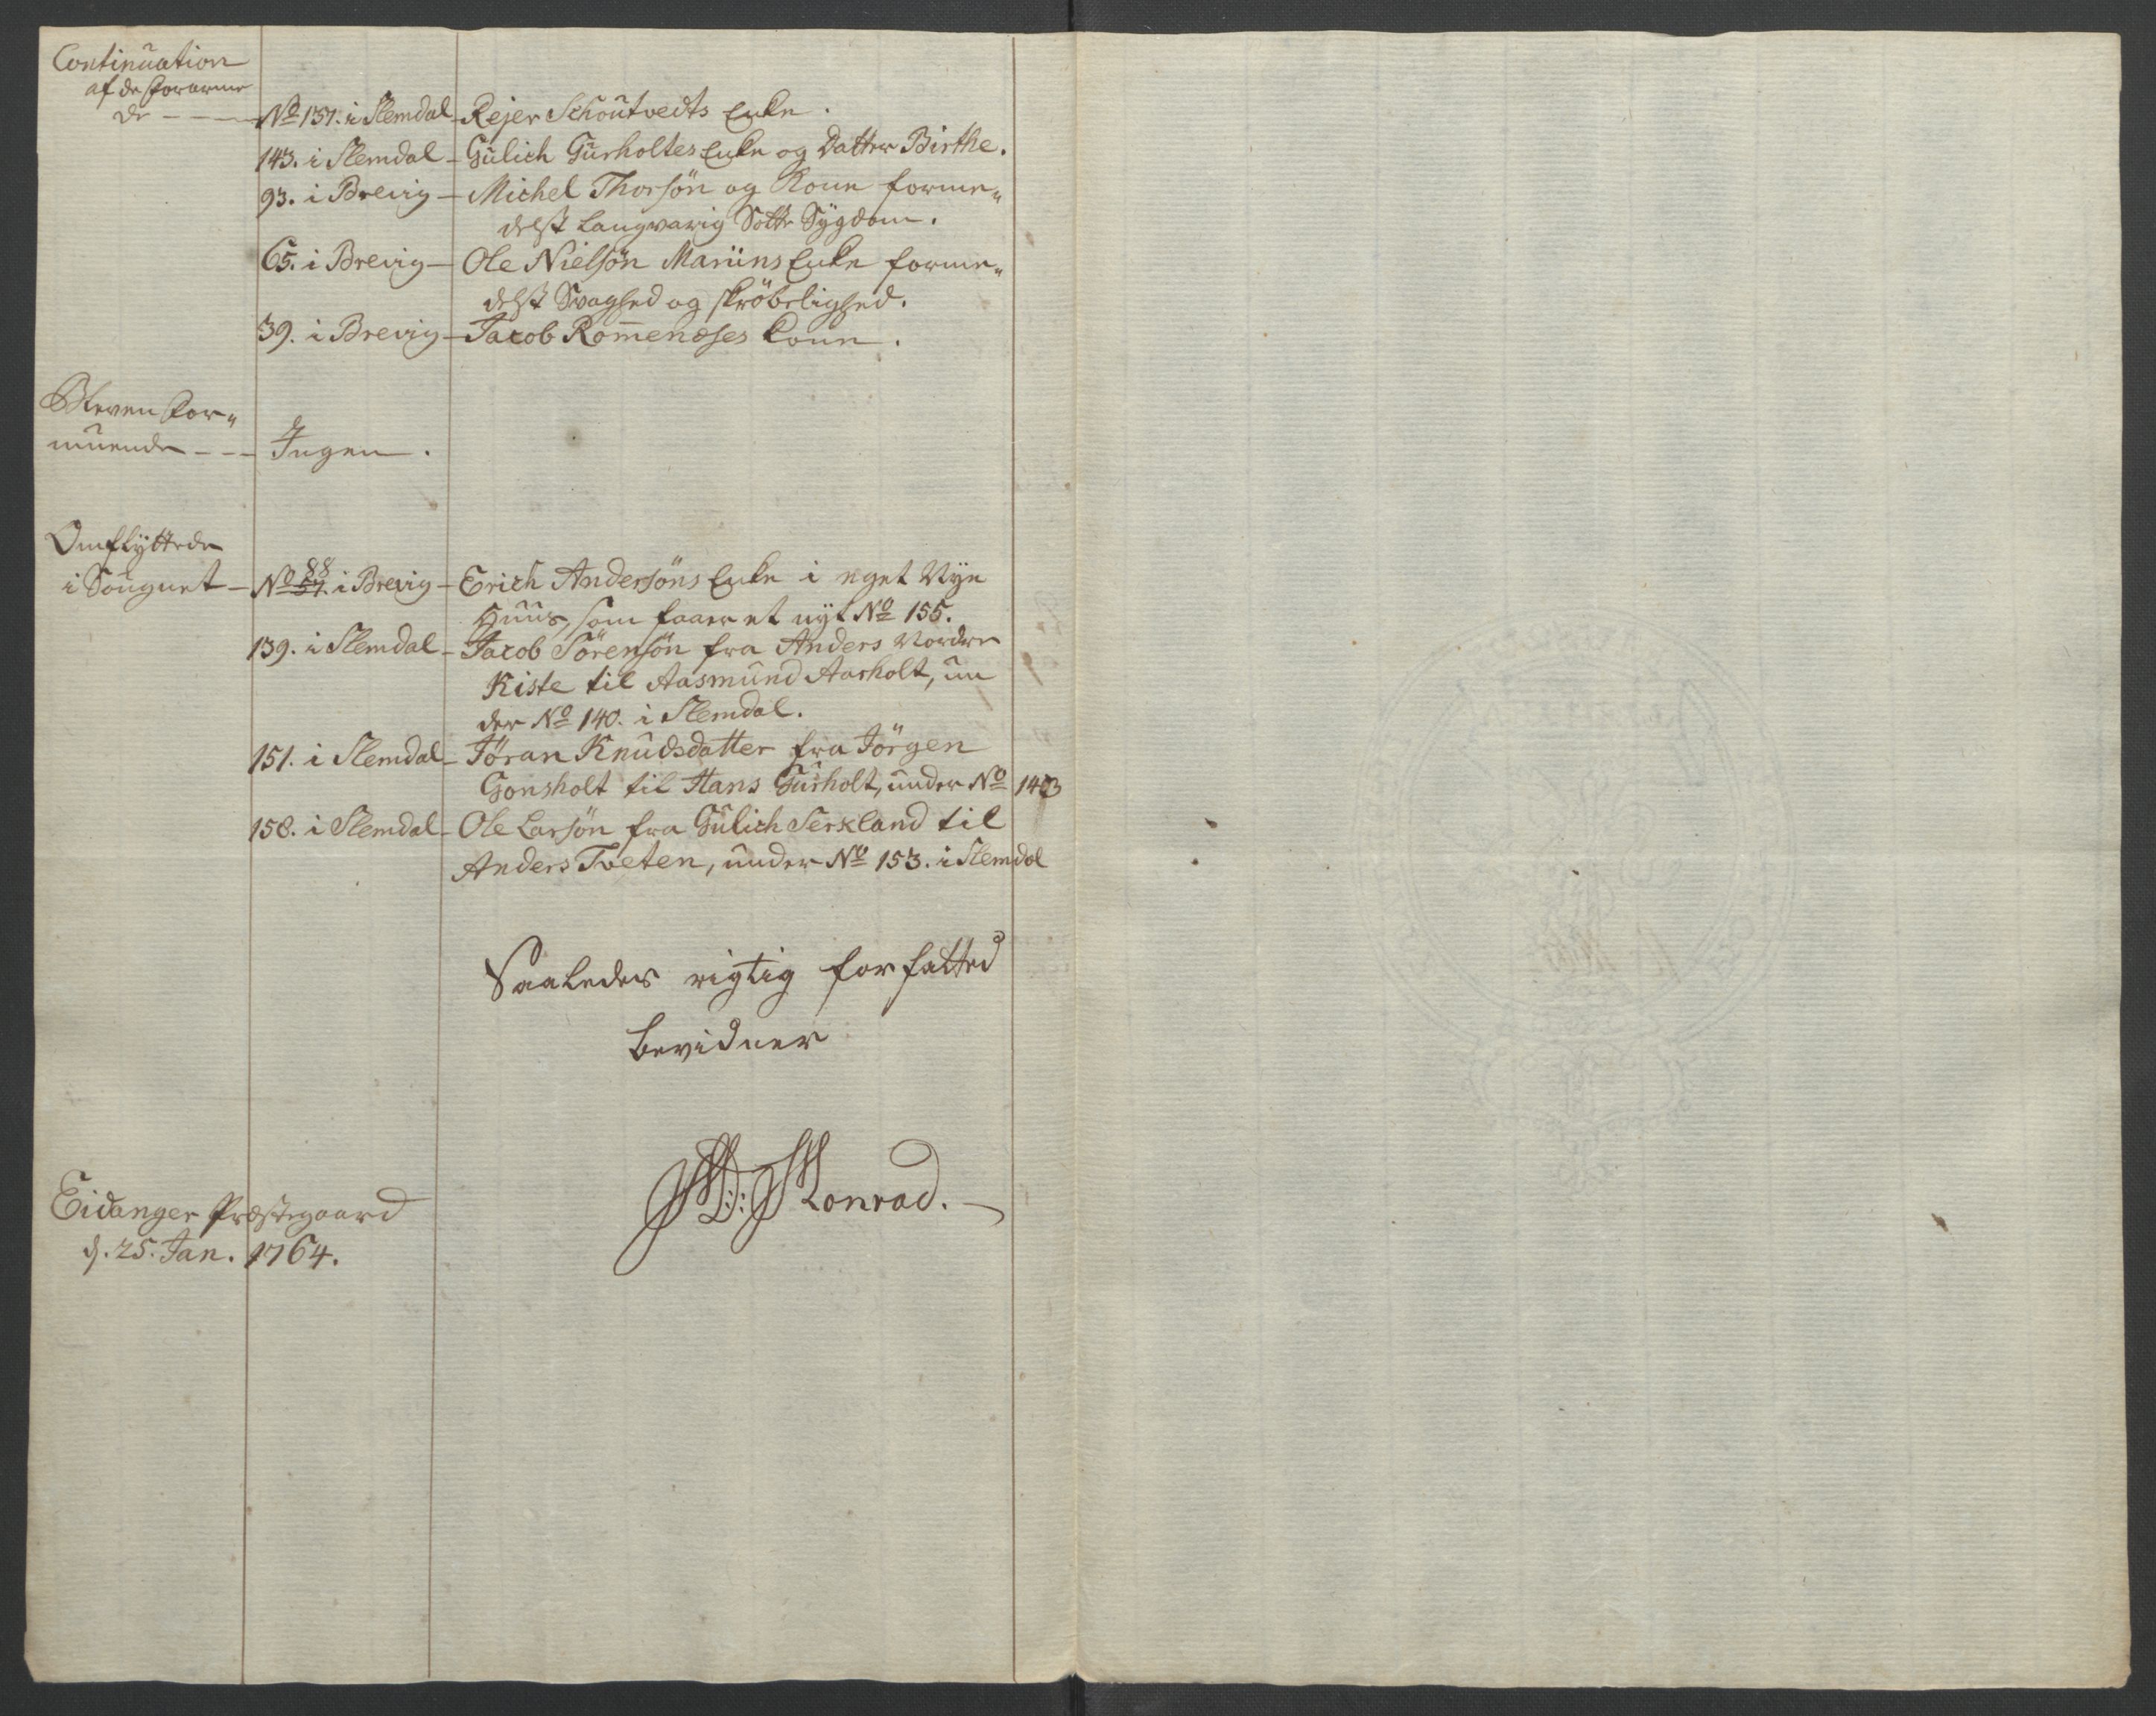 Continuation
af de forarme
de - - - No 137. i Slemdal - Rejer Schoutvedts Enke.
143. i Slemdal - Gulich Gurholtes Enke og Datter Birthe.
93. i Brevig - Michel Thorsön og Kone forme„
delst langvarig Sott Sygdom.
65. i Brevig - Ole Nielsön Maruns Enke forme„
delst Svaghed og skröbelighed.
39. i Brevig - Jacob Rom̄enæses Kone.
Bleven for„
muende - - - Ingen.
Omflyttede
i Sougnet - No 88 i Brevig - Erich Andersöns Enke i eget Nye
Huus, som faaer et nyt No 155.
139. i Slemdal - Jacob Sörensön fra Anders Nordre
Kiste til Aasmund Aarholt, un
der No 140. i Slemdal.
151. i Slemdal - Jöran Knudsdatter fra Jörgen
Gonsholt til Hans Gurholt, under No 143
158. i Slemdal - Ole Larsön fra Gulich Serkland til
Anders Tveten, under No 153. i Slemdal
Saaledes rigtig forfatted
bevidner
Monrad.
Eidanger Præstegaard
d. 25. Jan. 1764.